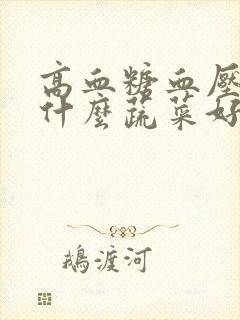 高血糖血壓
什麼蔬菜好
鵝渡河